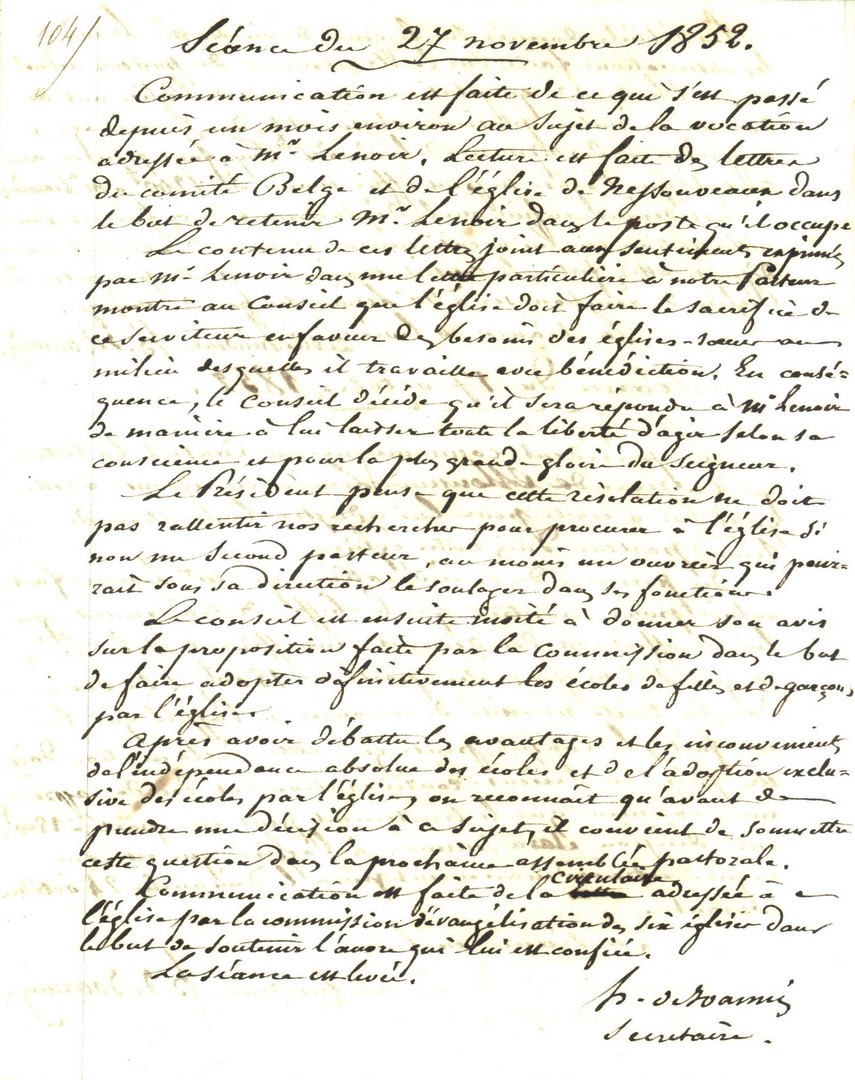 104/
Séance du 27 novembre 1852.
Communication est faite de ce qui s'est passé
depuis un mois environ au sujet de la vocation
adressée à Mr Lenoir. Lecture est faite des lettres
du comité Belge et de l'église de Nessonveaux dans
le but de retenir Mr Lenoir dans le poste qu'il occupe
Le contenu de ces lettres joint aux sentiments exprimés
par Mr Lenoir dans une lettre particulière à notre Pasteur
montre au Conseil que l'église doit faire le sacrifice de
ce serviteur en faveur des besoins des églises-sœurs au
milieu desquelles il travaille avec bénédiction. En consé-
quence, le Conseil décide qu'il sera répondu à Mr Lenoir
de manière à lui laisser toute la liberté d'agir selon sa
conscience et pour la plus grande gloire du Seigneur.
Le Président pense que cette résolution ne doit
pas rallentir nos recherches pour procurer à l'église si
non un second pasteur, au moins un ouvrier qui pour-
rait sous sa direction le soulager dans ses fonctions.
Le conseil est ensuite invité à donner son avis
sur la proposition faite par la Commission dans le but
de faire adopter définitivement les écoles de filles et de garçons
par l'église.
Après avoir débattu les avantages et les inconvenients
de l'indépendance absolue des écoles et de l'adoption exclu-
sive des écoles par l'église, on reconnaît qu'avant de
prendre une décision à ce sujet, il convient de soumettre
cette question dans la prochaine assemblée pastorale.
Communication est faite de la circulaire adressée à
l'église par la commission d'évangélisation des six églises dans
le but de soutenir l'œuvre qui lui est confiée.
La séance est levée.
h. de Joannis
Secrétaire.